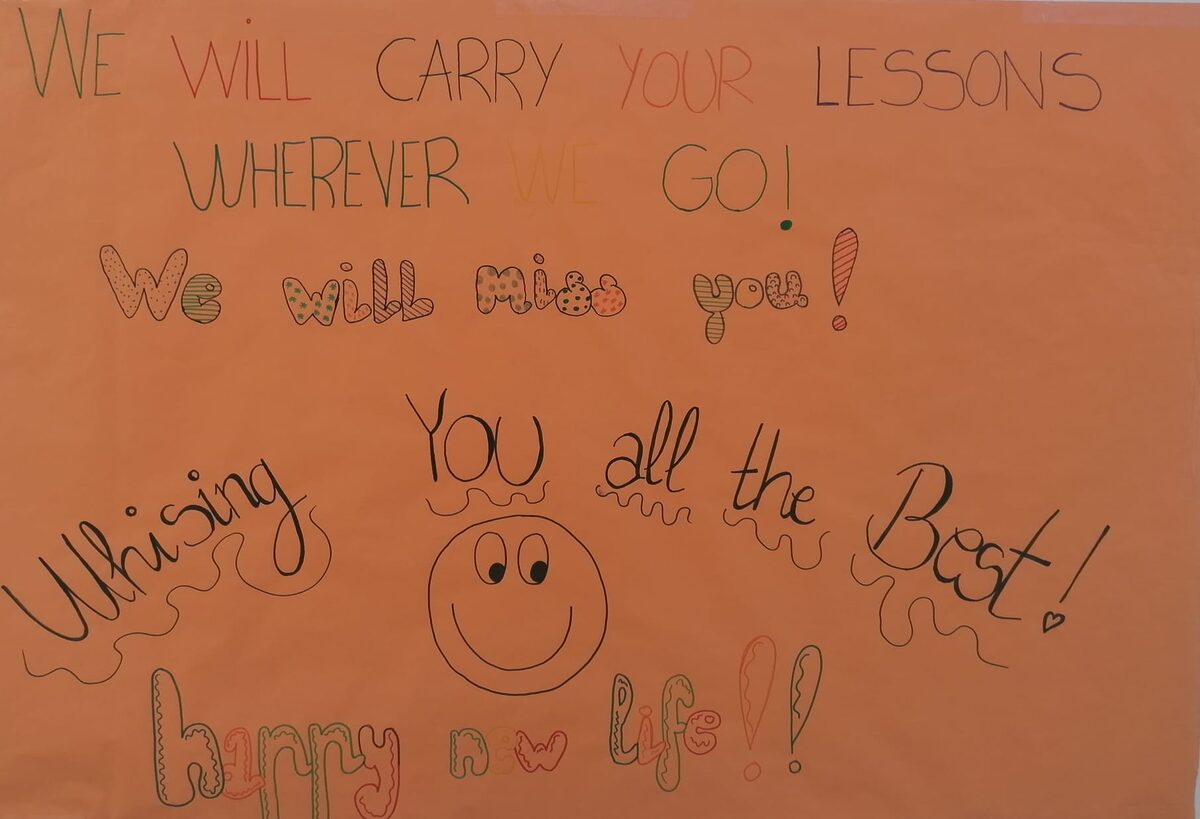 WE WILL CARRY YOUR LESSONS
WHEREVER WE GO!
We will miss you!
Whising You all the Best!
happy new life!!